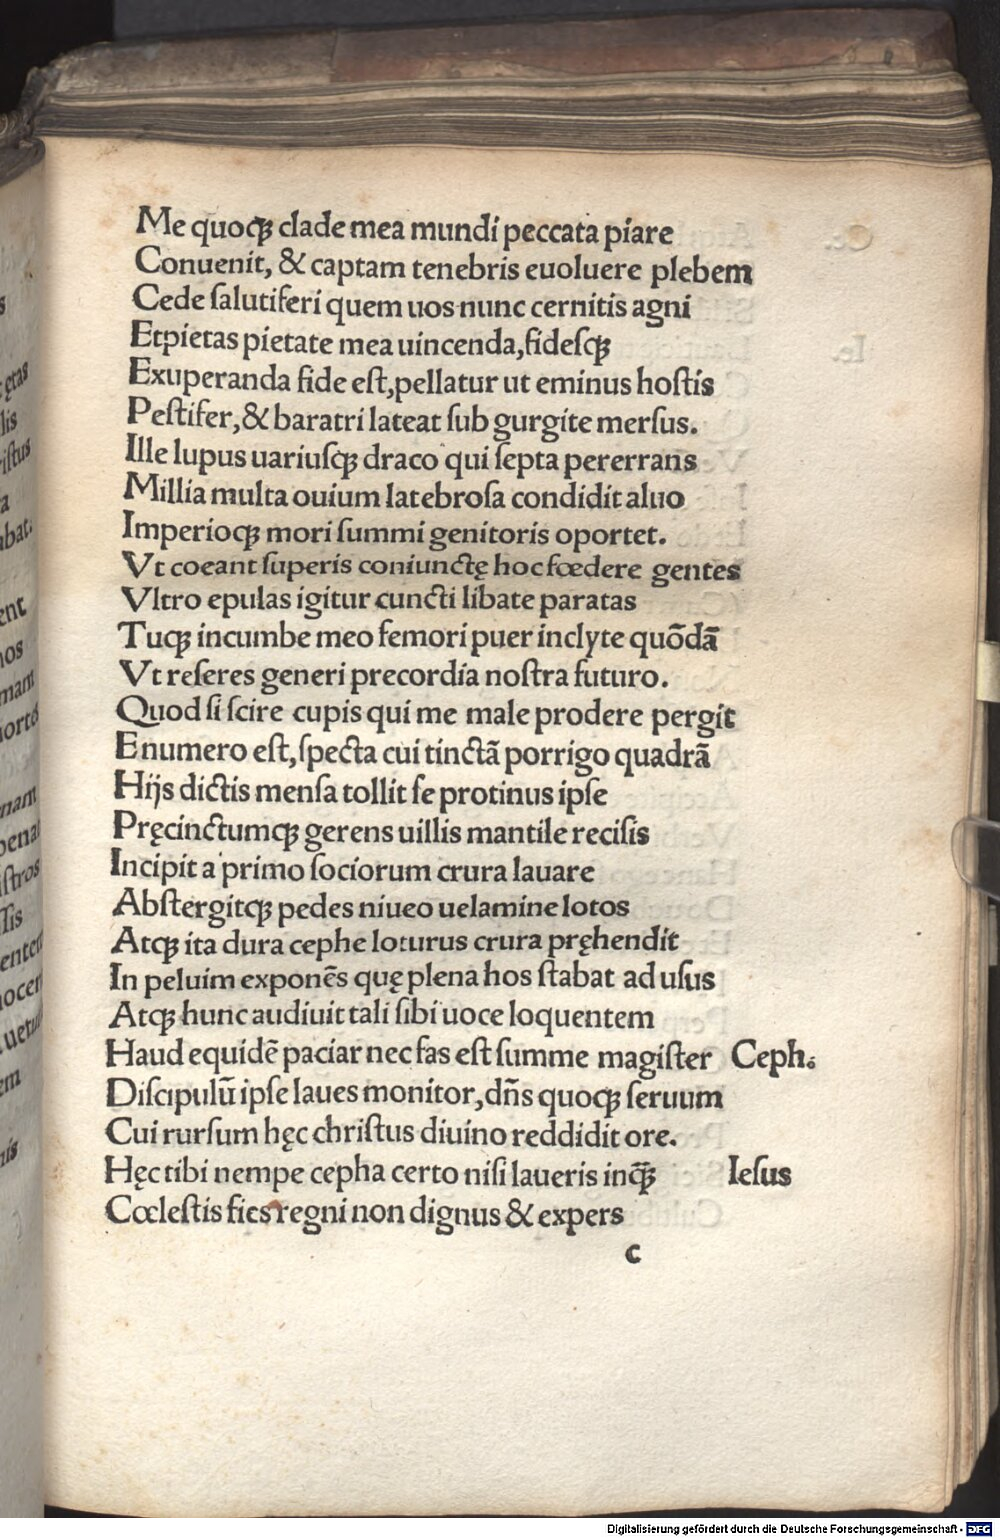 Me quoqꝫ clade mea mundi peccata piare
Conuenit, & captam tenebris euoluere plebem
Cede ſalutiferi quem uos nunc cernitis agni
Etpietas pietate mea uincenda, fideſqꝫ
Exuperanda fide eſt, pellatur ut eminus hoſtis
Peſtifer, & baratri lateat ſub gurgite merſus.
Ille lupus uariuſqꝫ draco qui ſepta pererrans
Millia multa ouium latebroſa condidit aluo
Imperioqꝫ mori ſummi genitoris oportet.
Vt coeant ſuperis coniunctę hoc fœdere gentes
Vltro epulas igitur cuncti libate paratas
Tuqꝫ incumbe meo femori puer inclyte quōdā
Vt reſeres generi precordia noſtra futuro.
Quod ſi ſcire cupis qui me male prodere pergit
E numero eſt, ſpecta cui tinctā porrigo quadrā
Hijs dictis menſa tollit ſe protinus ipſe
Pręcinctumqꝫ gerens uillis mantile reciſis
Incipit a primo ſociorum crura lauare
Abſtergitqꝫ pedes niueo uelamine lotos
Atqꝫ ita dura cephe loturus crura pręhendit
In peluim exponēs quę plena hos ſtabat ad uſus
Atqꝫ hunc audiuit tali ſibi uoce loquentem
Haud equidē paciar nec fas eſt ſumme magiſter Ceph.
Diſcipulū ipſe laues monitor, dn̄s quoqꝫ ſeruum
Cui rurſum hęc chriſtus diuino reddidit ore.
Hęc tibi nempe cepha certo niſi laueris inqꝫ̄ Ieſus
Cœleſtis fies regni non dignus & expers
c
Digitalisierung gefördert durch die Deutsche Forschungsgemeinschaft - DFG